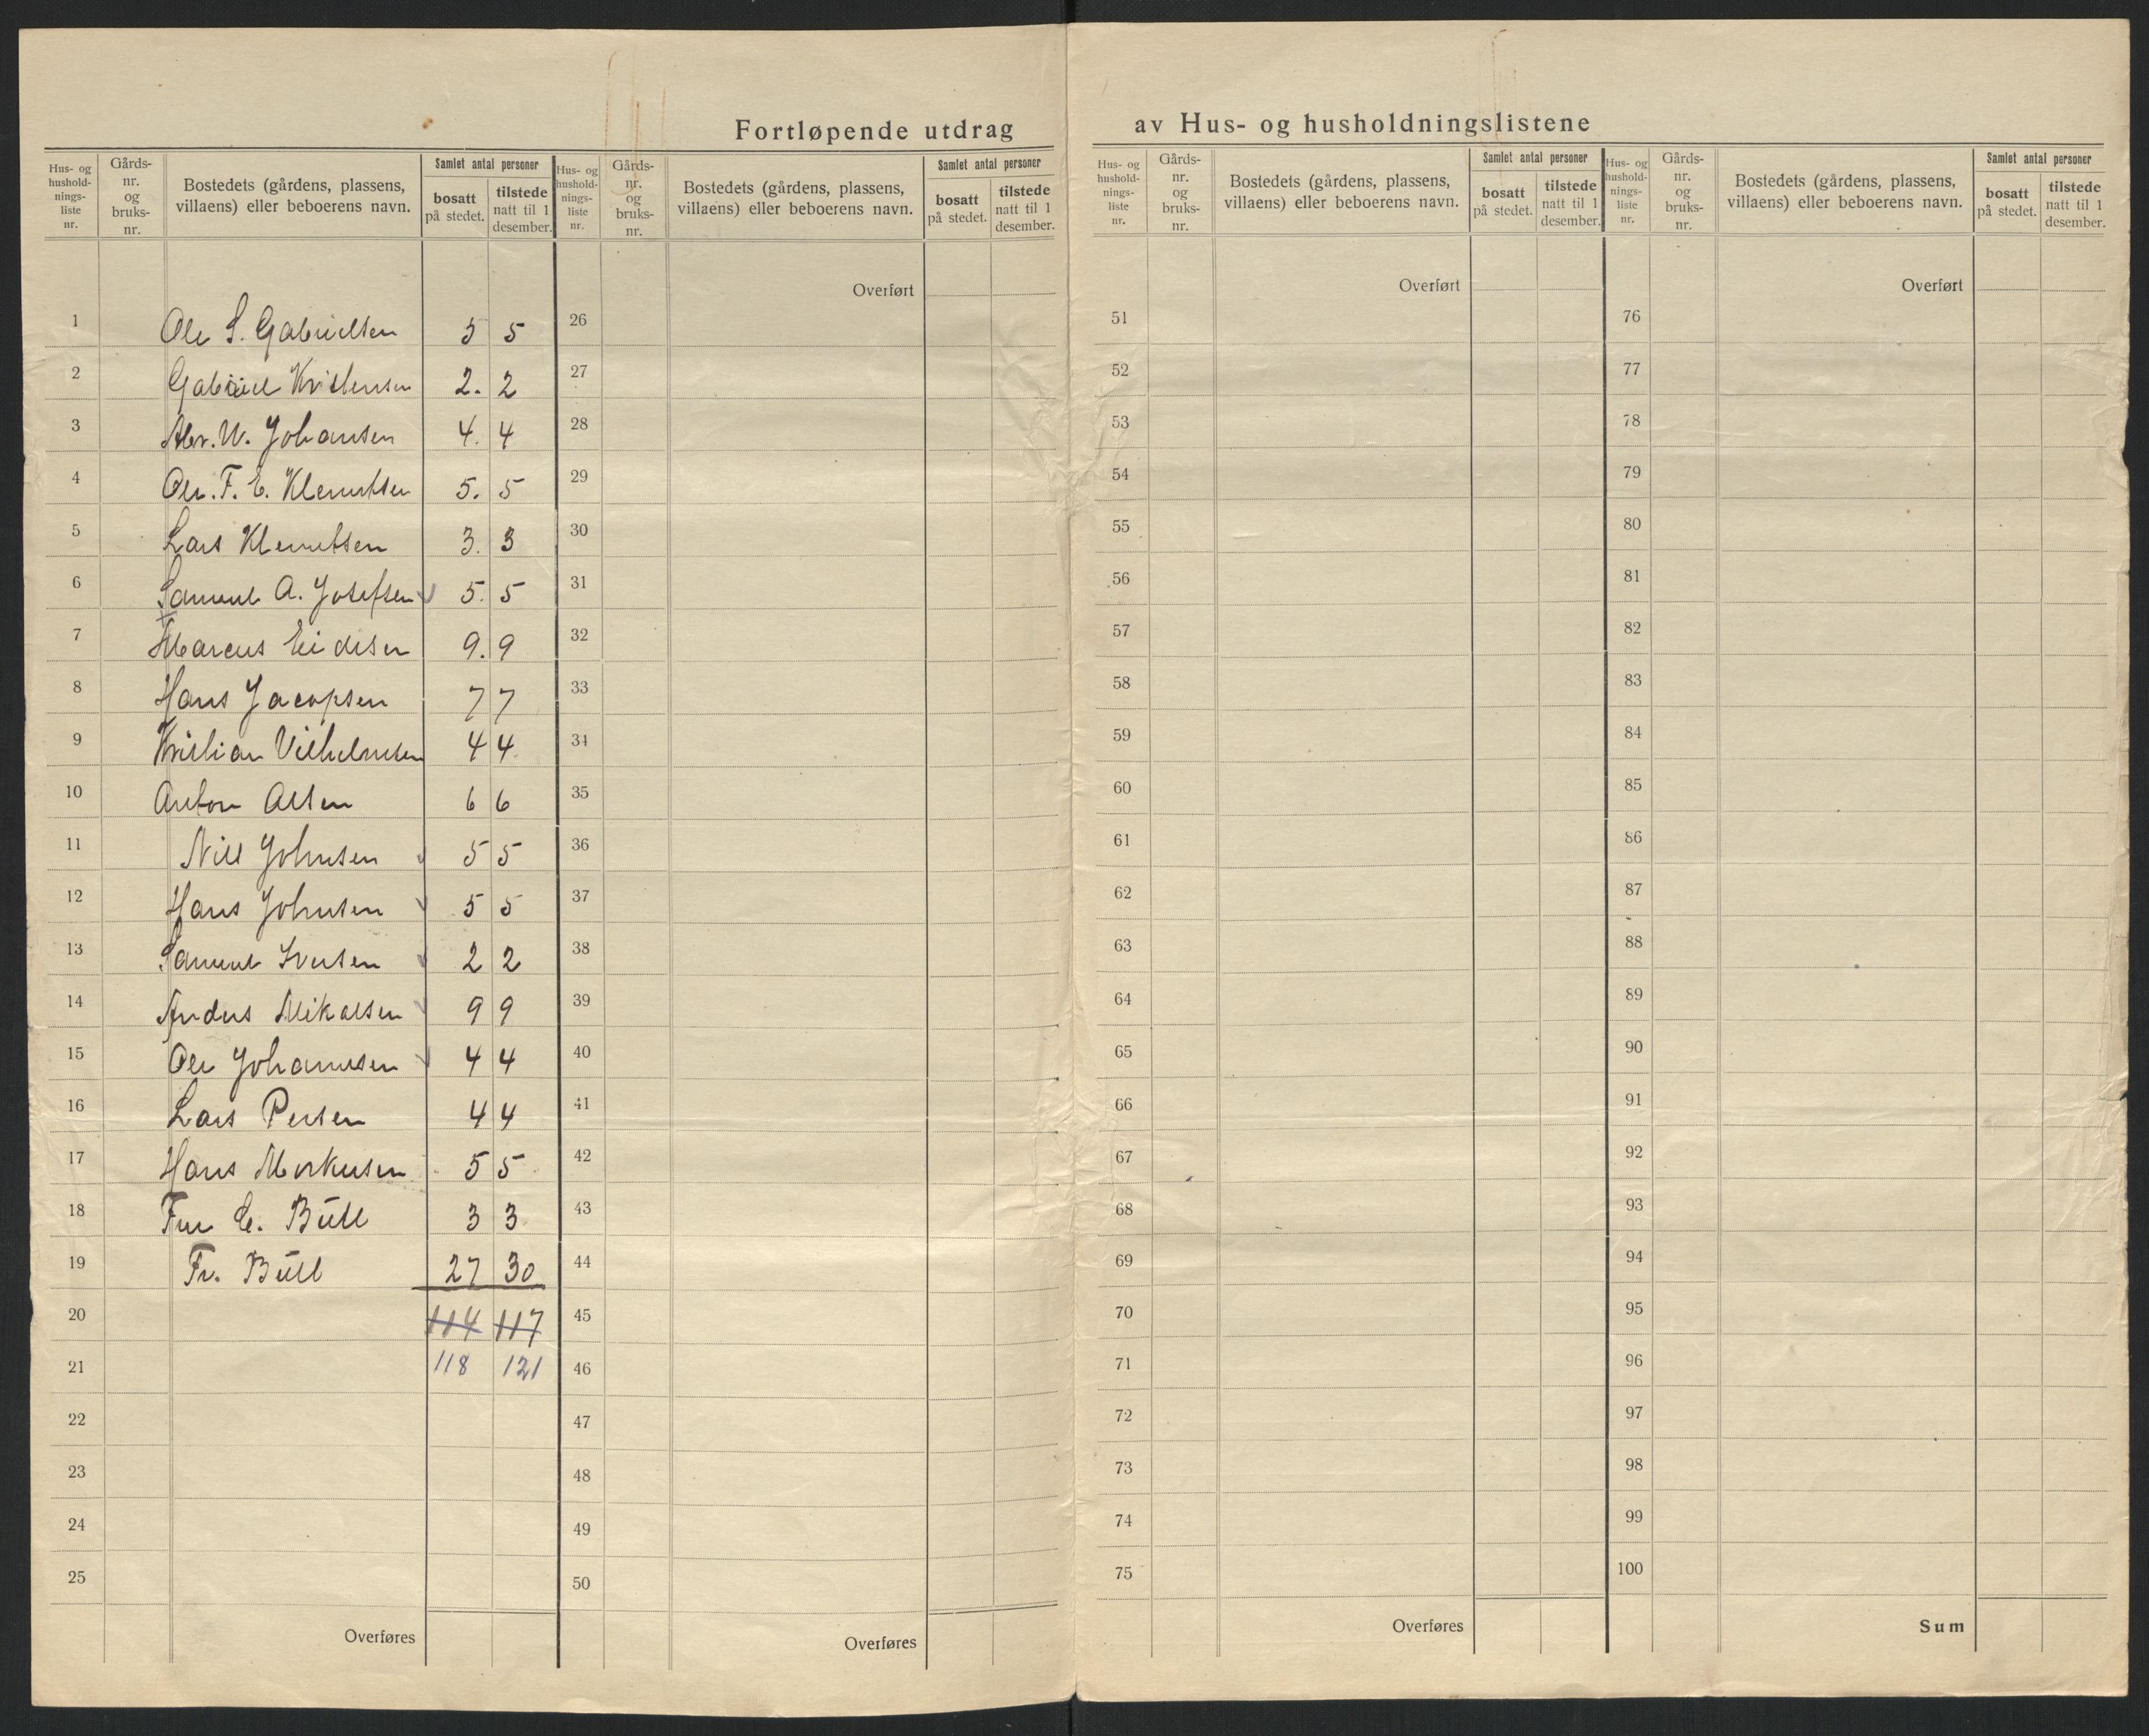 Fortløpende utdrag av Hus- og husholdningslistene
Hus- og hushold-nings-liste nr. Gårds-nr. og bruks-nr. Bostedets (gårdens, plassens, villaens) eller beboerens navn. Samlet antal personer bosatt på stedet. tilstede natt til 1 desember.
Hus- og hushold-nings-liste nr. Gårds-nr. og bruks-nr. Bostedets (gårdens, plassens, villaens) eller beboerens navn. Samlet antal personer bosatt på stedet. tilstede natt til 1 desember.
Hus- og hushold-nings-liste nr. Gårds-nr. og bruks-nr. Bostedets (gårdens, plassens, villaens) eller beboerens navn. Samlet antal personer bosatt på stedet. tilstede natt til 1 desember.
Hus- og hushold-nings-liste nr. Gårds-nr. og bruks-nr. Bostedets (gårdens, plassens, villaens) eller beboerens navn. Samlet antal personer bosatt på stedet. tilstede natt til 1 desember.
1 Ole S. Gabrielsen 5 5
2 Gabriel Kristensen 2. 2
3 W. Johansen 4. 4
4 Ole. F. E. Klemetsen 5. 5
5 Lars Klemetsen 3. 3
6 Samuel A. Josefsen 5. 5
7 Marcus Eidisen 9. 9
8 Hans Jacopsen 7 7
9 Kristian Vilhelmsen 4 4
10 Anton Alsen 6 6
11 Nils Johnsen 5 5
12 Hans Johnsen 5 5
13 Samuel Iversen 2 2
14 Anders Mikalsen 9 9
15 Ole Johannesen 4 4
16 Lars Persen 4 4
17 Hans Markusen 5 5
18 Fru E. Bull 3 3
19 Fr. Bull 27 30
20 114 117
21 118 121
22
23
24
25
Overføres
Overført
26
27
28
29
30
31
32
33
34
35
36
37
38
39
40
41
42
43
44
45
46
47
48
49
50
Overføres
Overført
51
52
53
54
55
56
57
58
59
60
61
62
63
64
65
66
67
68
69
70
71
72
73
74
75
Overføres
Overført
76
77
78
79
80
81
82
83
84
85
86
87
88
89
90
91
92
93
94
95
96
97
98
99
100
Sum